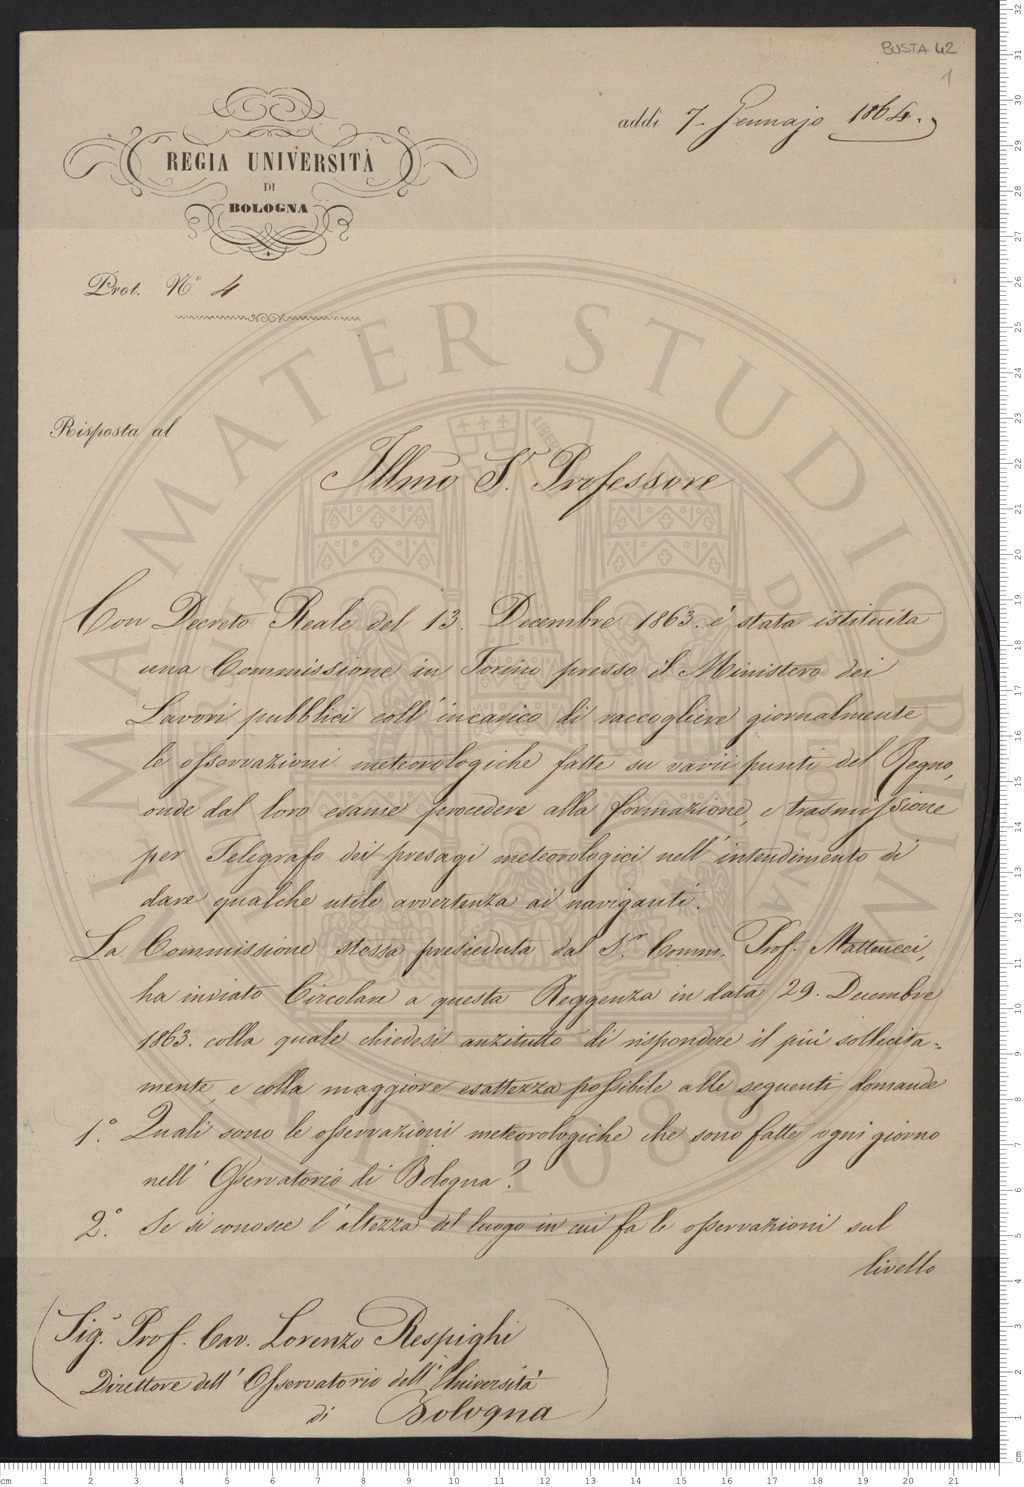 BUSTA 42
1
REGIA UNIVERSITÀ
DI
BOLOGNA
addì 7. Gennajo 1864.
Prot. N° 4
Risposta al
Illmo Sr. Professore
Con Decreto Reale del 13. Decembre 1863. é stata istituita
una Commissione in Torino presso il Ministero dei
Lavori pubblici coll'incarico di raccogliere giornalmente
le osservazioni meteorologiche fatte su varii punti del Regno,
onde dal loro esame procedere alla formazione, e trasmissione
per Telegrafo dei presagi meteorologici nell'intendimento di
dare qualche utile avvertenza ai naviganti.
La Commissione stessa presieduta dal Sr. Comm. Prof. Matteucci,
ha inviato Circolare a questa Reggenza in data 29. Decembre
1863. colla quale chiedesi anzitutto di rispondere il più sollecita=
mente, e colla maggiore esattezza possibile alle seguenti domande
1.° Quali sono le osservazioni meteorologiche che sono fatte ogni giorno
nell'Osservatorio di Bologna?
2.° Se si conosce l'altezza del luogo in cui fa le osservazioni sul
livello
Sigr. Prof. Cav. Lorenzo Respighi
Direttore dell'Osservatorio dell'Università
di Bologna
ALMA MATER STUDIORUM
A.D. 1088